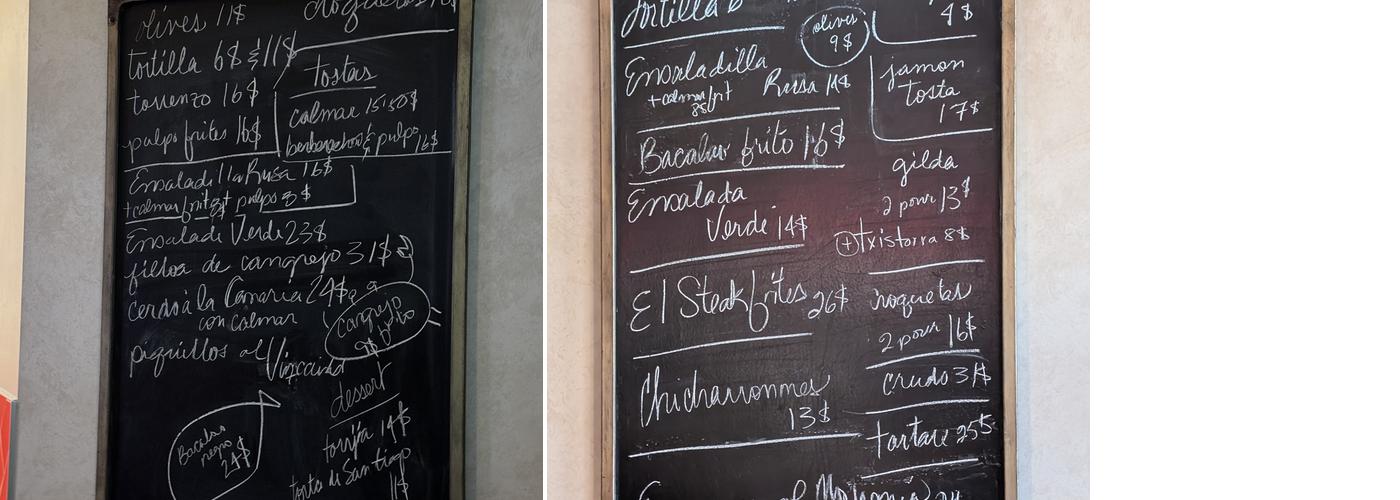 olives 11$
tortilla 6$ & 11$
torrenzo 16$
pulpo frites 16$
tostas
calmar 15.50$
pulpo 16$
Ensaladilla Rusa 16$
+calmar frit
pulpo 3$
Ensalade Verde 23$
filloa de cangrejo 31$
cerdo à la Canaria 24$
con calmar
piquillos al Vizcaina
cangrejo
frito
9$
Bacalao
negro
24$
dessert
torrija 14$
torta de Santiago
11$
tortilla
olives
9$
4$
Ensaladilla
Rusa 14$
+calmar frit
8$
jamon
tosta
17$
Bacalao frito 16$
gilda
2 pour 13$
+ txistorra 8$
Ensalada
Verde 14$
El Steak frites 26$
croquetas
2 pour 16$
Chicharronnes
13$
Crudo 31$
tartare 25$